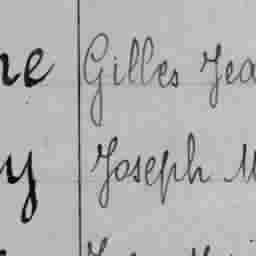 ne Gilles Jea
y Joseph M